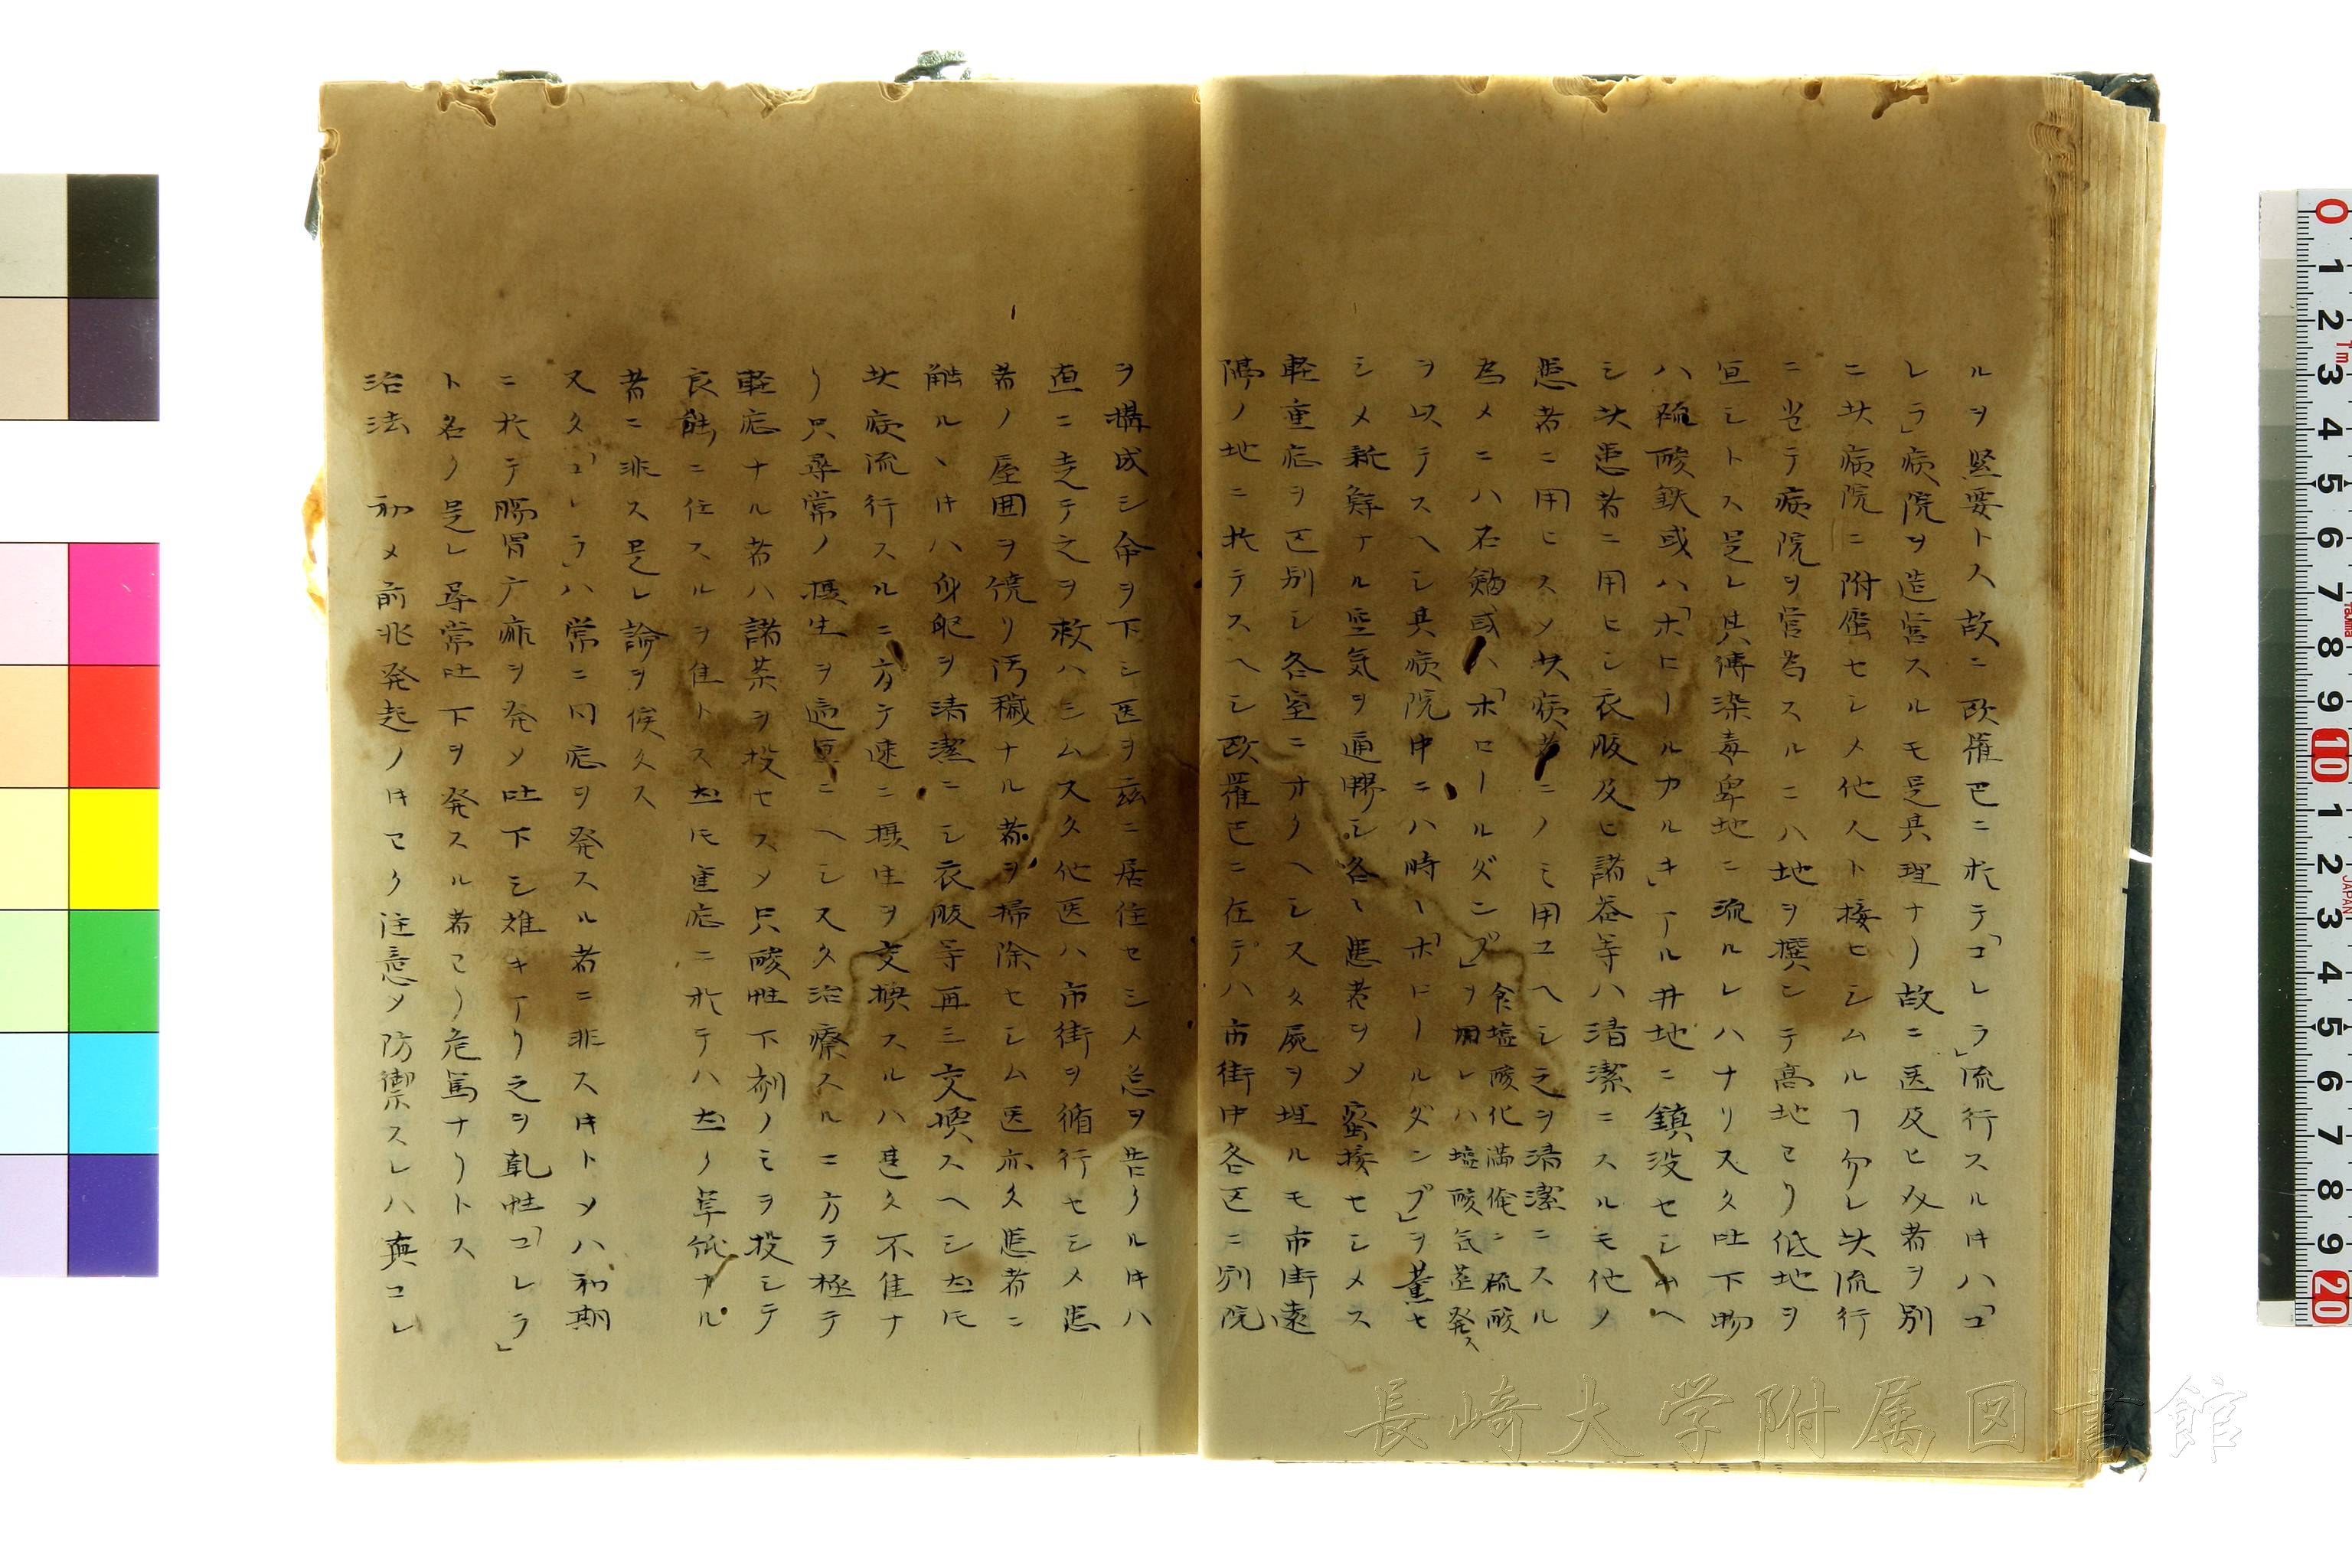 ルヲ緊要トス故ニ欧羅巴ニ於テ「コレラ」流行スルキハ「コ
レラ」病院ヲ造営スルモ是其理ナリ故ニ医及ヒ父者ヲ別
ニ此病院ニ附属セシメ他人ト接セシムルヿ勿レ此流行
ニ当テ病院ヲ営為スルニハ地ヲ撰ンテ高地ヨリ低地ヲ
宜シトス是レ其傳染毒卑地ニ流ルレハナリ又夂吐下物
ハ硫酸鉄或ハ「ホロールカルキ」アル井地ニ鎮没セシムヘ
シ此患者ニ用ヒシ衣服及ヒ諸器等ハ清潔ニスルモ他ノ
患者ニ用ヒスメ此病者ニノミ用ユヘシ之ヲ清潔ニスル
為メニハ石鹸或ハ「ホロールダンプ」ヲ
食塩酸化満俺ニ硫酸
用レハ塩酸気蒸発ス
ヲ以テスヘシ其病院中ニハ時々「ホロールダンプ」ヲ薫セ
シメ新鮮ナル空気ヲ通膠シ各々患者ヲメ蜜接セシメス
軽重症ヲ区別シ各室ニオクヘシ又夂屍ヲ埋ルモ市街遠
隔ノ地ニ於テスヘシ欧羅巴ニ在テハ市街中各区ニ別院
ヲ構成シ命ヲ下シ医ヲ茲ニ居住セシメ急ヲ告クルキハ
直ニ走テ之ヲ救ハシム又夂他医ハ市街ヲ循行セシメ患
者ノ屋囲ヲ傍リ汚穢ナル者ヲ掃除セシム医亦夂患者ニ
触ルヽキハ身躯ヲ清潔ニシ衣服等再三交換スヘシ然𪜈
此病流行スルニ方テ速ニ摂生ヲ交換スルハ甚夂不佳ナ
リ只尋常ノ摂生ヲ適宜ニヘシ又夂治療スルニ方テ極テ
軽症ナル者ハ諸薬ヲ投セスメ只酸性下剤ノミヲ投シテ
良能ニ任スルヲ佳トス然𪜈重症ニ於テハ然リ阜低ナル
者ニ非ス是レ論ヲ俟夂ス
又夂「コレラ」ハ常ニ同症ヲ発スル者ニ非スキトメハ初期
ニ於テ腸胃广痲ヲ発メ吐下シ難キアリ之ヲ乾性「コレラ」
ト名ク是レ尋常吐下ヲ発スル者ヨリ危篤ナリトス
治法　初メ前兆発起ノキヨリ注意メ防禦スレハ真コレ